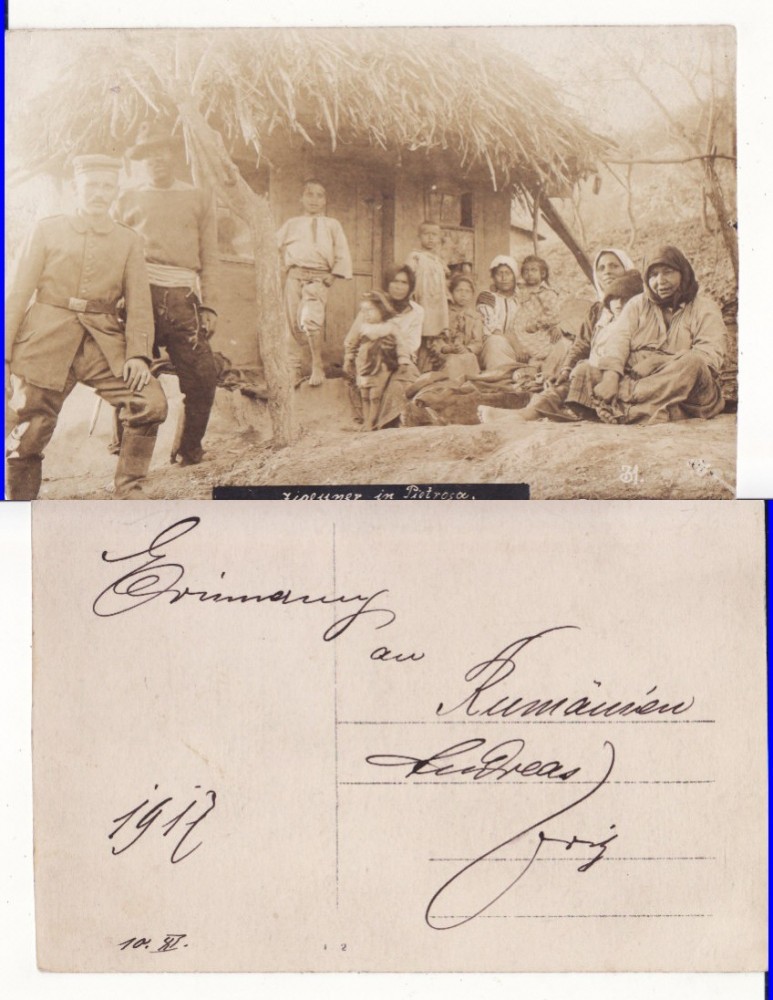 Zigeuner in Pietrosa.
31.
Erinnerung
an
Rumänien
Andreas
1917
10. XI.